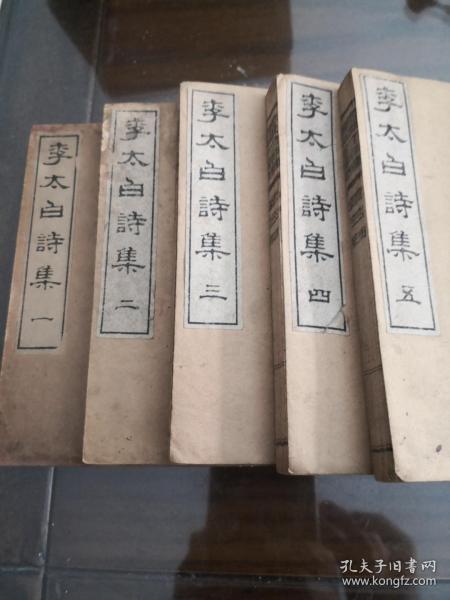 李太白詩集 一
李太白詩集 二
李太白詩集 三
李太白詩集 四
李太白詩集 五
孔夫子旧书网
www.kongfz.com